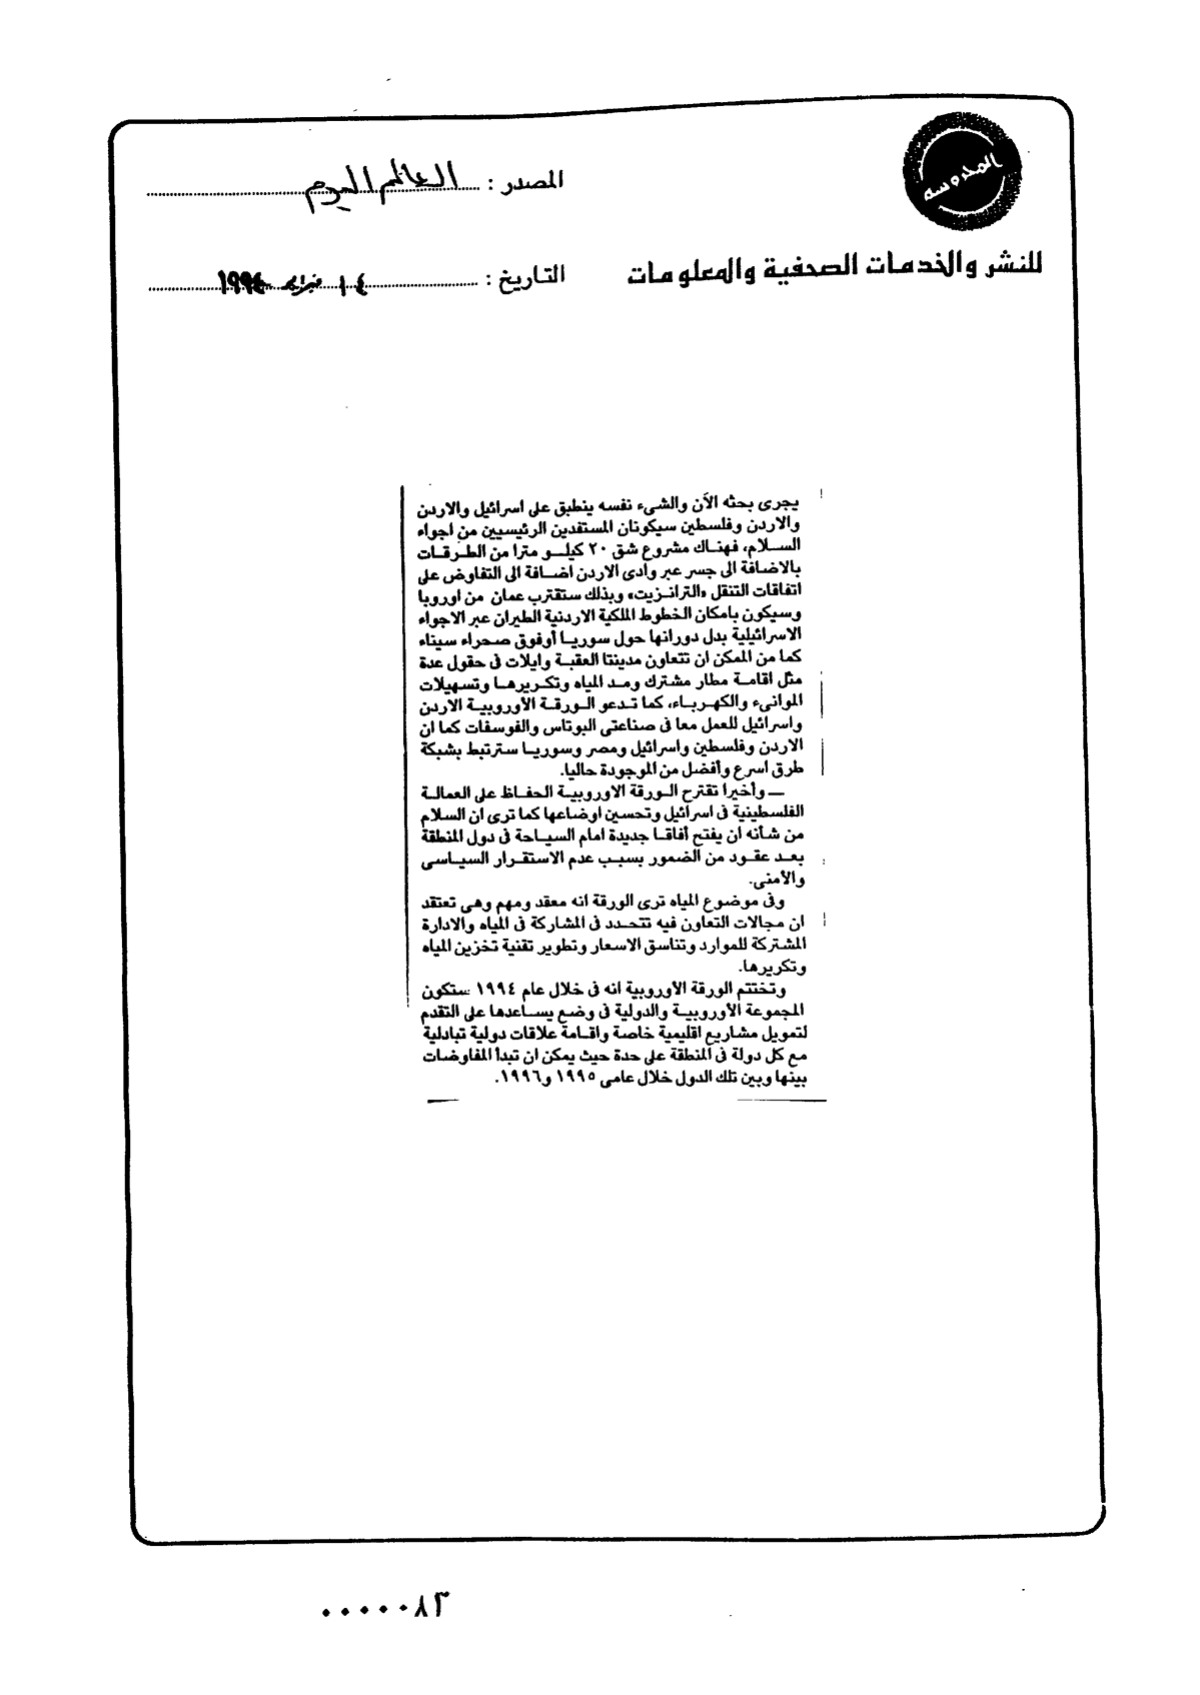 المحروسه
المصدر : العالم اليوم
للنشر والخدمات الصحفية والمعلومات
التاريخ : ١٤ فبراير ١٩٩٤
يجرى بحثه الآن والشىء نفسه ينطبق على اسرائيل والاردن
والاردن وفلسطين سيكونان المستفدين الرئيسيين من اجواء
السلام، فهناك مشروع شق ٢٠ كيلو مترا من الطرقات
بالاضافة الى جسر عبر وادى الاردن اضافة الى التفاوض على
اتفاقات التنقل «الترانزيت» وبذلك ستقترب عمان من اوروبا
وسيكون بامكان الخطوط الملكية الاردنية الطيران عبر الاجواء
الاسرائيلية بدل دورانها حول سوريا أوفوق صحراء سيناء
كما من الممكن ان تتعاون مدينتا العقبة وايلات فى حقول عدة
مثل اقامة مطار مشترك ومد المياه وتكريرها وتسهيلات
الموانىء والكهرباء، كما تدعو الورقة الأوروبية الاردن
واسرائيل للعمل معا فى صناعتى البوتاس والفوسفات كما ان
الاردن وفلسطين واسرائيل ومصر وسوريا سترتبط بشبكة
طرق اسرع وأفضل من الموجودة حاليا.
ـ وأخيرا تقترح الورقة الاوروبية الحفاظ على العمالة
الفلسطينية فى اسرائيل وتحسين اوضاعها كما ترى ان السلام
من شأنه ان يفتح أفاقا جديدة امام السياحة فى دول المنطقة
بعد عقود من الضمور بسبب عدم الاستقرار السياسى
والأمنى.
وفى موضوع المياه ترى الورقة انه معقد ومهم وهى تعتقد
ان مجالات التعاون فيه تتحدد فى المشاركة فى المياه والادارة
المشتركة للموارد وتناسق الاسعار وتطوير تقنية تخزين المياه
وتكريرها.
وتختتم الورقة الأوروبية انه فى خلال عام ١٩٩٤ ستكون
المجموعة الأوروبية والدولية فى وضع يساعدها على التقدم
لتمويل مشاريع اقليمية خاصة واقامة علاقات دولية تبادلية
مع كل دولة فى المنطقة على حدة حيث يمكن ان تبدأ المفاوضات
بينها وبين تلك الدول خلال عامى ١٩٩٥ و١٩٩٦.
٠٠٠٠٠٨٣